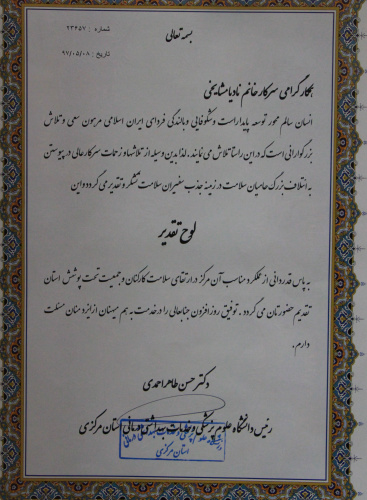 بسمه تعالی
شماره : ۲۳۴۵۷
تاریخ : ۹۷/۰۵/۰۸
همکار گرامی سرکار خانم نادیا مشایخی
انسان سالم محور توسعه پایدار است و شکوفایی و بالندگی فردای ایران اسلامی مرهون سعی و تلاش
بزرگوارانی است که در این راستا تلاش می نمایند. لذا بدین وسیله از تلاشها و زحمات سرکار عالی در پیوستن
به ائتلاف بزرگ حامیان سلامت در زمینه جذب سفیران سلامت تشکر و تقدیر می گردد و این
لوح تقدیر
به پاس قدردانی از عملکرد مناسب آن مرکز در ارتقای سلامت کارکنان و جمعیت تحت پوشش استان
تقدیم حضورتان می گردد . توفیق روز افزون جنابعالی را در خدمت به هم میهنان از ایزد منان مسئلت
دارم .
دکتر حسن طاهراحمدی
رئیس دانشگاه علوم پزشکی و خدمات بهداشتی درمانی استان مرکزی
استان مرکزی